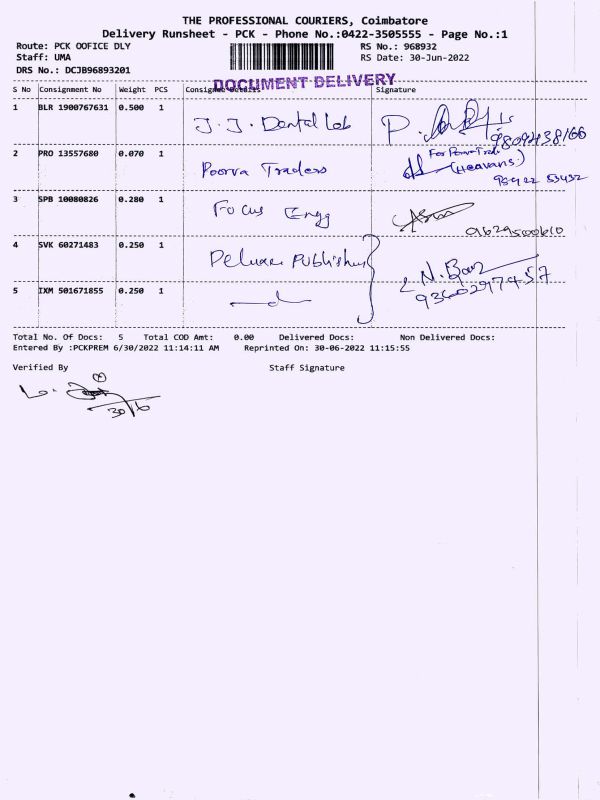 THE PROFESSIONAL COURIERS, Coimbatore
Delivery Runsheet - PCK - Phone No.:0422-3505555 - Page No.:1
Route: PCK OOFICE DLY
RS No.: 968932
Staff: UMA
RS Date: 30-Jun-2022
DRS No.: DCJB96893201
DOCUMENT DELIVERY
S No Consignment No Weight PCS Consignee Details Signature
1 BLR 1900767631 0.500 1 J. J. Dental Lab P.
2 PRO 13557680 0.070 1 Poorva Traders
3 SPB 10080826 0.280 1 Focus Engg
9629500610
4 SVK 60271483 0.250 1 Deluxe Publisher
9360297457
5 IXM 501671855 0.250 1
Total No. Of Docs: 5 Total COD Amt: 0.00 Delivered Docs: Non Delivered Docs:
Entered By :PCKPREM 6/30/2022 11:14:11 AM Reprinted On: 30-06-2022 11:15:55
Verified By Staff Signature
30/6